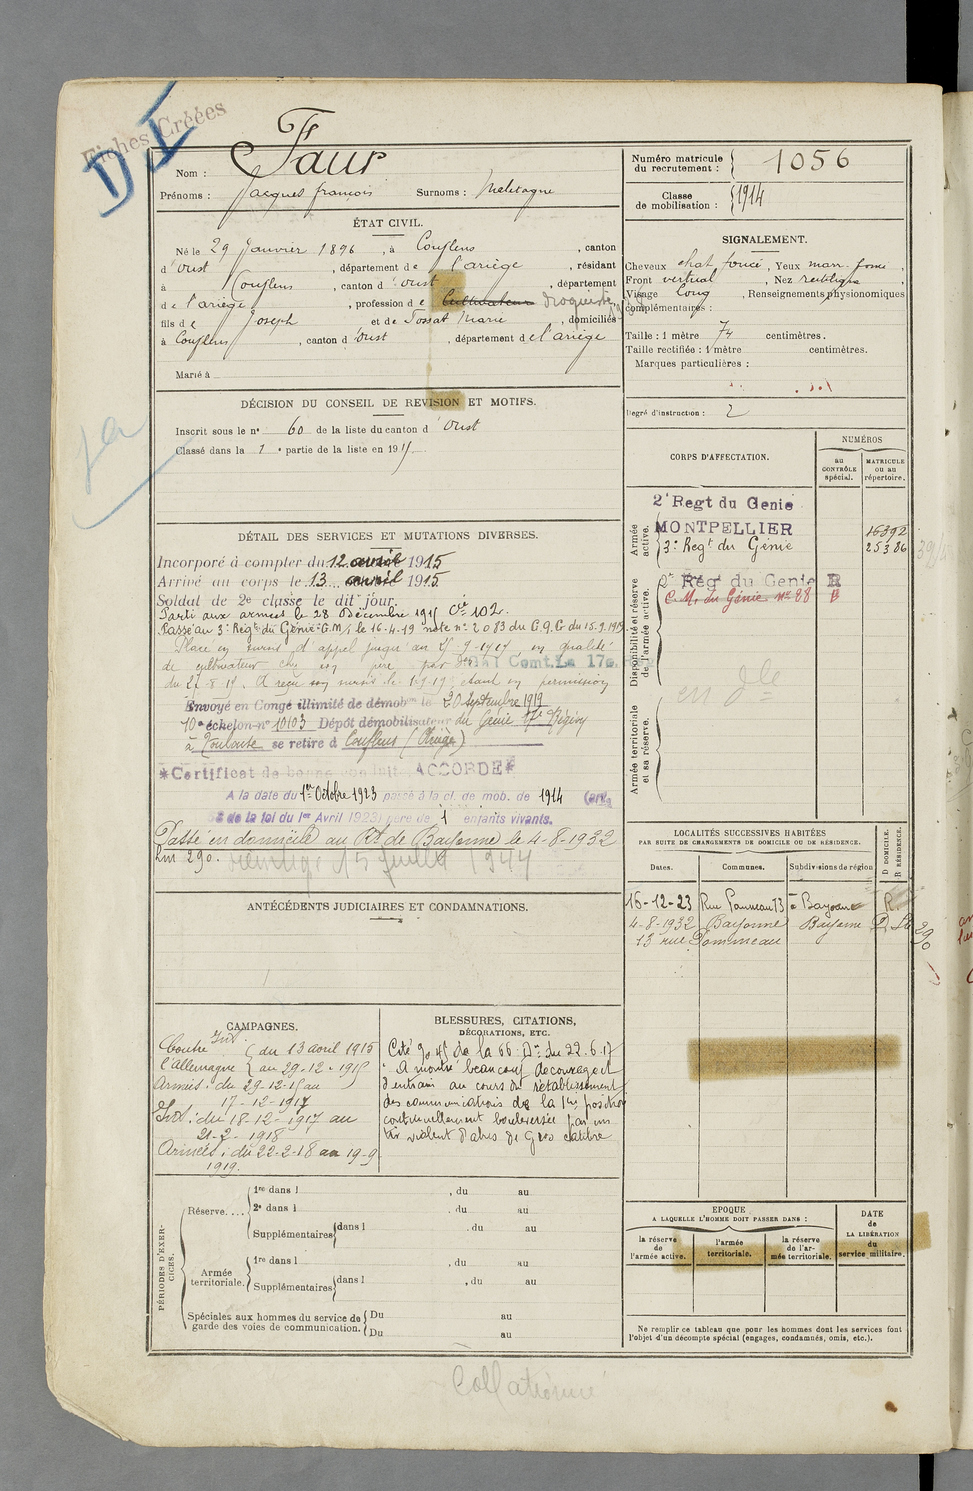 Fiches Créées
D I
Nom : Faur
Prénoms : Jacques françois Surnoms :
Numéro matricule du recrutement : 1056
Classe de mobilisation : 1914
ÉTAT CIVIL.
Né le 29 Janvier 1896, à Couflens, canton
d'Oust, département de l'ariège, résidant
à Couflens, canton d'oust, département
de l'ariège, profession de Cultivateur droguiste
fils de Joseph et de Tossat Marie, domiciliés
à Couflens, canton d'Oust, département de l'ariège
Marié à
SIGNALEMENT.
Cheveux chat. foncé, Yeux marr. foncé,
Front vertical, Nez rectiligne,
Visage long, Renseignements physionomiques
complémentaires :
Taille : 1 mètre 74 centimètres.
Taille rectifiée : 1 mètre centimètres.
Marques particulières :
Degré d'instruction : 2
DÉCISION DU CONSEIL DE REVISION ET MOTIFS.
Inscrit sous le nº 60 de la liste du canton d'Oust
Classé dans la 1e partie de la liste en 1915
DÉTAIL DES SERVICES ET MUTATIONS DIVERSES.
Incorporé à compter du 12 avril 1915
Arrivé au corps le 13 avril 1915
Soldat de 2e classe le dit jour.
Parti aux armées le 28 Décembre 1915 Cie 102.
Passé au 3e Regt du Génie G.M. le 16-4-19 note nº 2083 du G.Q.G du 15.9.1919.
Placé en sursis d'appel jusqu'au en qualité
de cultivateur chez son père par Comt. La 17e
du A reçu son sursis le étant en permission
Envoyé en Congé illimité de démobon le 20 septembre 1919
10e échelon nº 10103 Dépôt démobilisateur du Génie 17e Région
à Toulouse se retire à Couflens (Ariège)
*Certificat de bonne conduite ACCORDÉ*
A la date du 1er Octobre 1923 passé à la cl. de mob. de 1914 (art.
de la loi du 1er Avril 1923) père de 1 enfants vivants.
Passé en domicile au Rt de Bayonne le 4-8-1932
Lm 290.
15 Juillet 1944
ANTÉCÉDENTS JUDICIAIRES ET CONDAMNATIONS.
CORPS D'AFFECTATION.
NUMÉROS
au CONTRÔLE spécial.
MATRICULE ou au répertoire.
Armée active.
2e Regt du Genie
MONTPELLIER 16392
3e Regt du Génie 25386
Disponibilité et réserve de l'armée active.
2e Rég du Genie R
C.M. du Génie nº 28 R
Armée territoriale et sa réserve.
LOCALITÉS SUCCESSIVES HABITÉES
PAR SUITE DE CHANGEMENTS DE DOMICILE OU DE RÉSIDENCE.
Dates. Communes. Subdivisions de région D DOMICILE. R RÉSIDENCE.
16-12-23 Rue Panneau 13 à Bayonne R.
4-8-1932 Bayonne Bayonne D.
13 rue Pommeau
290
CAMPAGNES.
Contre Int. du 13 avril 1915
l'Allemagne au 29-12-1915
Armées : du 29-12-15 au
17-12-1917
Int : du 18-12-1917 au
21-2-1918
Armées : du 22-2-18 au 19-9
1919.
BLESSURES, CITATIONS,
DÉCORATIONS, ETC.
Cité 9. 45 de la 66e Don du 22.6.17
"A montré beaucoup de courage et
d'entrain au cours du rétablissement
des communications de la 1ère position
continuellement bouleversée par un
tir violent d'obus de gros calibre
PÉRIODES D'EXERCICES.
Réserve....
1re dans l , du au
2e dans l , du au
Supplémentaires dans l , du au
Armée territoriale.
1re dans l , du au
Supplémentaires dans l , du au
Spéciales aux hommes du service de garde des voies de communication.
Du au
Du au
EPOQUE
A LAQUELLE L'HOMME DOIT PASSER DANS :
la réserve de l'armée active.
l'armée territoriale.
la réserve de l'armée territoriale.
DATE de LA LIBÉRATION du service militaire.
Ne remplir ce tableau que pour les hommes dont les services font
l'objet d'un décompte spécial (engages, condamnés, omis, etc.).
Collationné